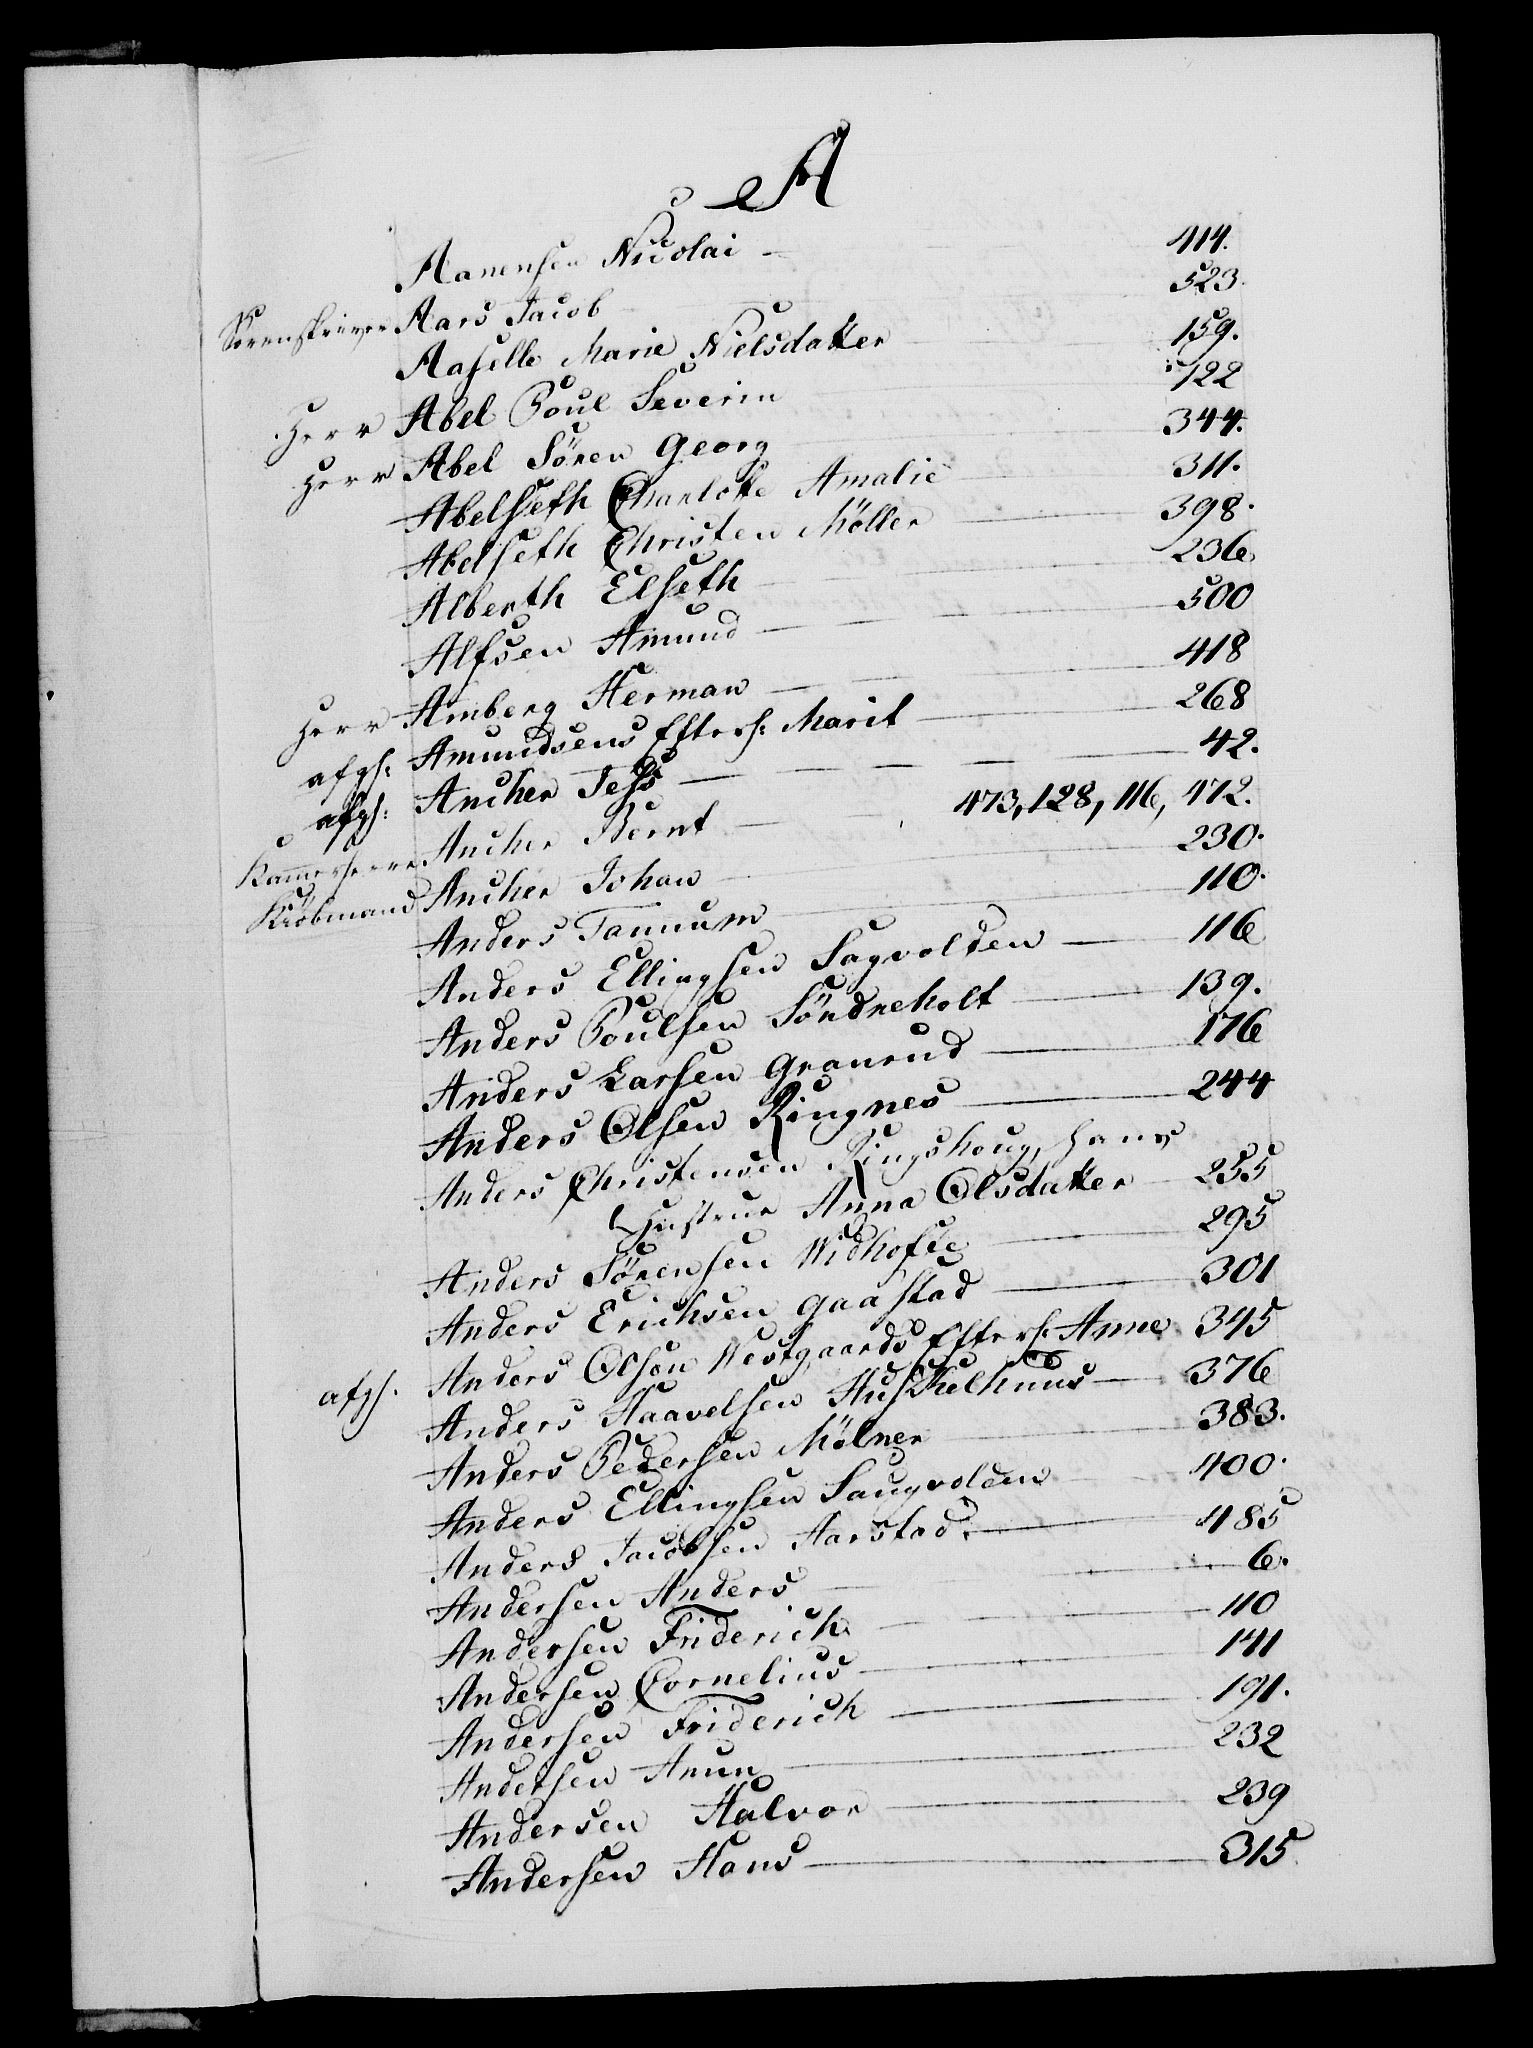 A
Aanensen Nicolai — 414.
Sorenskriver Aars Jacob 523.
Aaselle Marie Nielsdatter 159.
Herr Abel Poul Severin 122
Herr Abel Sören Georg 344.
Abelseth Charlotte Amalie 311.
Abelseth Christen Möller — 398.
Alberth Elseth — 236
Alfsen Amund — 500
Herr Amberg Herman — 418
afgh: Amundsens Efterl: Marit — 268
afgh: Ancher Jess — 42.
Kammerherre Ancher Bernt — 473, 128, 116, 472.
Kiöbmand Ancher Johan — 230.
Anders Tannum — 110.
Anders Ellingsen Sagvolden — 116
Anders Poulsen Söndreholt — 139.
Anders Larsen Granrud — 176
Anders Olsen Ringnes — 244
Anders Christensen Ringshoug, hans
Hustrue Anna Olsdatter 255
Anders Sörensen Widhofte — 295
Anders Erichsen Gaastad — 301
afgh. Anders Olsen Westgaards Efterl: Anne 345
Anders Haavelsen Huskelhuus — 376
Anders Pedersen Mölner — 383.
Anders Ellingsen Saugvolden — 400.
Anders Jacobsen Aarstad. — 485
Andersen Anders — 6.
Andersen Friderich — 110
Andersen Cornelius — 141
Andersen Friderich — 191.
Andersen Anun — 232
Andersen Halvor — 239
Andersen Hans — 315.